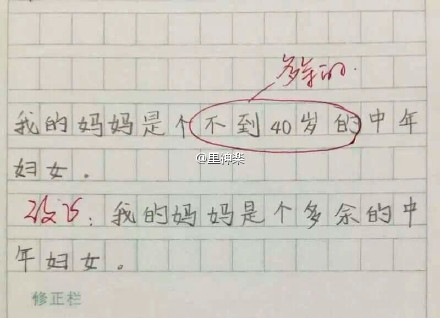 多余的.
我的妈妈是个不到40岁的中年
妇女。
@里神楽
改正：我的妈妈是个多余的中
年妇女。
修正栏